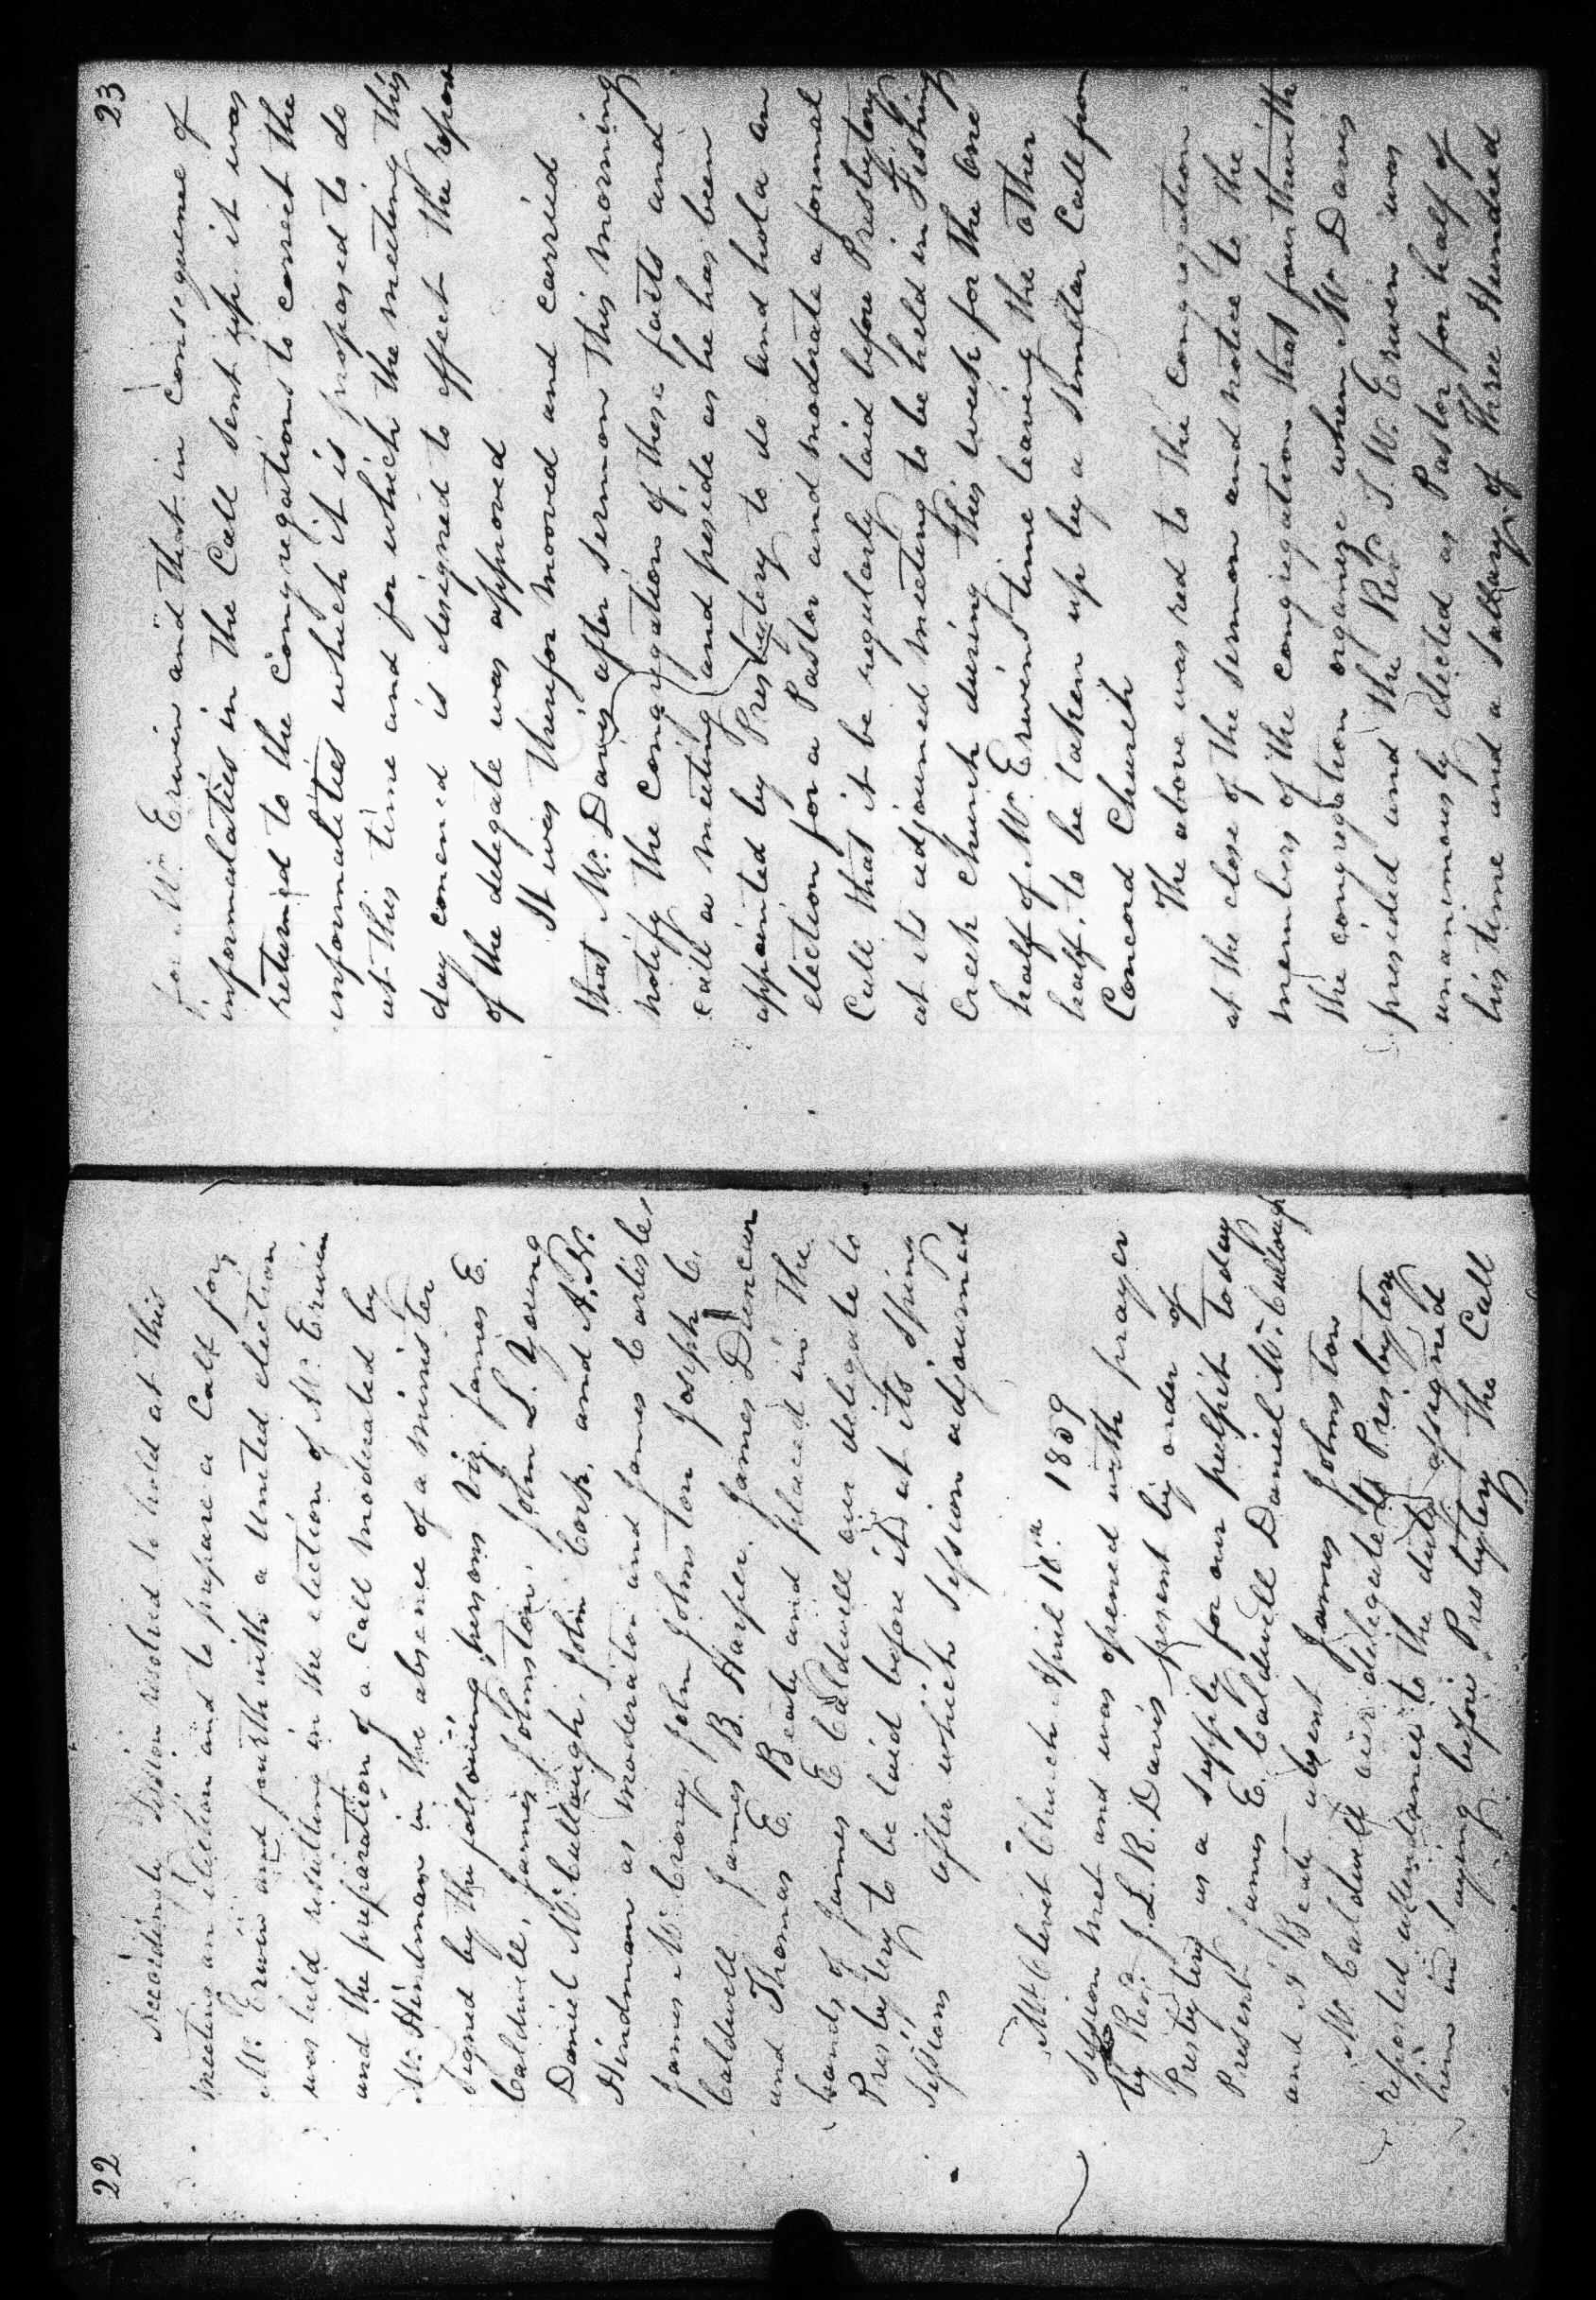 22
Accordingly Session resolved to hold at this
meeting an Election and to prepare a Call for
Mr. Erwin and forth with a united election
was held resulting in the election of Mr. Erwin
and the preparation of a Call moderated by
Mr. Hindman in the absence of a minister
signed by the following persons Viz. James E.
Caldwell, James Johnston, John L. Young
Daniel McCullough, John Cork, and A. W.
Hindman as moderator and James Carlisle,
James McCrorey John Johnston Joseph C.
Caldwell James B. Harper. James Duncan
and Thomas E. Beaty and placed in the
hands of James E Caldwell our delegate to
Presbytery to be laid before it at its Spring
Sessions after which Session adjourned
Mt Olivet Church April 10th 1859
Session met and was opened with prayer
by Revd J. L. R. Davis present by order of
Presbytery as a supply for our pulpit today
Present James E. Caldwell Daniel McCullough
and Beaty absent James Johnston
Mr. Caldwell our delegate to Presbytery
reported attendance to the duty assigned
him in laying before Presbytery the Call
23
for Mr. Erwin and that in consequence of
informalaties in the Call sent up it was
returned to the Congregations to correct the
informalities which it is proposed to do
at this time and for which the meeting this
day conened is designed to effect the report
of the delegate was approved
It was therefor mooved and carried
that Mr. Davis after sermon this morning
notify the Congregation of these facts and
call a meeting and preside as he has been
appointed by Presbytery to do and hold an
election for a Pastor and moderate a formal
Call that it be regularly laid before Presbytery
at its adjourned meeting to be held in Fishing
Creek Church during this week for the one
half of Mr. Erwins time leaving the other
half, to be taken up by a similar Call from
Concord Church
The above was red to the congregation
at the close of the sermon and notice to the
members of the congregation that fourthwith
the congregation organize when Mr Davis
presided and the Revd J. W. Erwin was
unanimously elected as Pastor for half of
his time and a sallary of Three Hundred